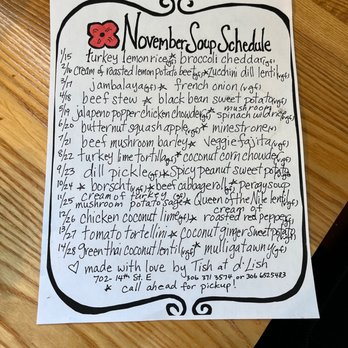 November Soup Schedule
1/15 turkey lemon rice(gf) ★ broccoli cheddar(gf)
2/16 cream of roasted lemon potato beet(gf) ★ zucchini dill lentil(gf)
3/17 jambalaya(gf) ★ french onion(vgf)
4/18 beef stew ★ black bean sweet potato(vgf)
5/19 jalapeno popper chicken chowder(gf) ★ mushroom spinach wildrice
6/20 butternut squash apple ★ minestrone
7/21 beef mushroom barley ★ veggie fajita(vgf)
8/22 turkey lime tortilla(gf) ★ coconut corn chowder
9/23 dill pickle(gf) ★ spicy peanut sweet potato
10/24 ★ borscht(gf) ★ beef cabbage roll(gf) ★ perogy soup
11/25 cream of turkey mushroom potato sage ★ Queen of the Nile lentil
12/26 chicken coconut lime(gf) ★ cream of roasted red pepper
13/27 tomato tortellini ★ coconut ginger sweet potato
14/28 green thai coconut lentil(vgf) ★ mulligatawny(gf)
♡ made with love by Tish at d'Lish
702-14th St. E 306 371 3574 or 306 6525483
★ call ahead for pickup!